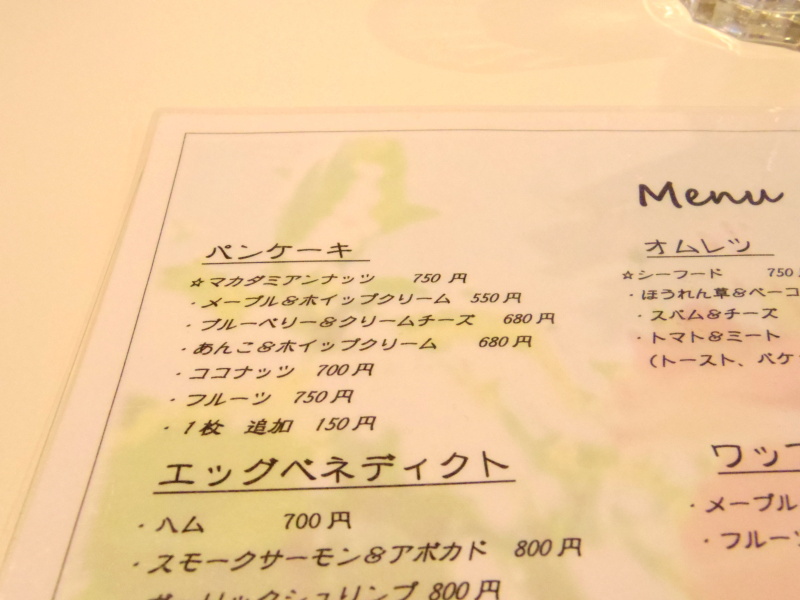 Menu
パンケーキ
☆マカダミアンナッツ 750 円
・メープル&ホイップクリーム 550 円
・ブルーベリー&クリームチーズ 680 円
・あんこ&ホイップクリーム 680 円
・ココナッツ 700 円
・フルーツ 750 円
・1枚 追加 150 円
エッグベネディクト
・ハム 700 円
・スモークサーモン&アボカド 800 円
ガーリックシュリンプ 800 円
オムレツ
☆シーフード 750
・ほうれん草&ベーコ
・スパム&チーズ
・トマト&ミート
(トースト、バケ
ワッフ
・メープル
・フルーツ